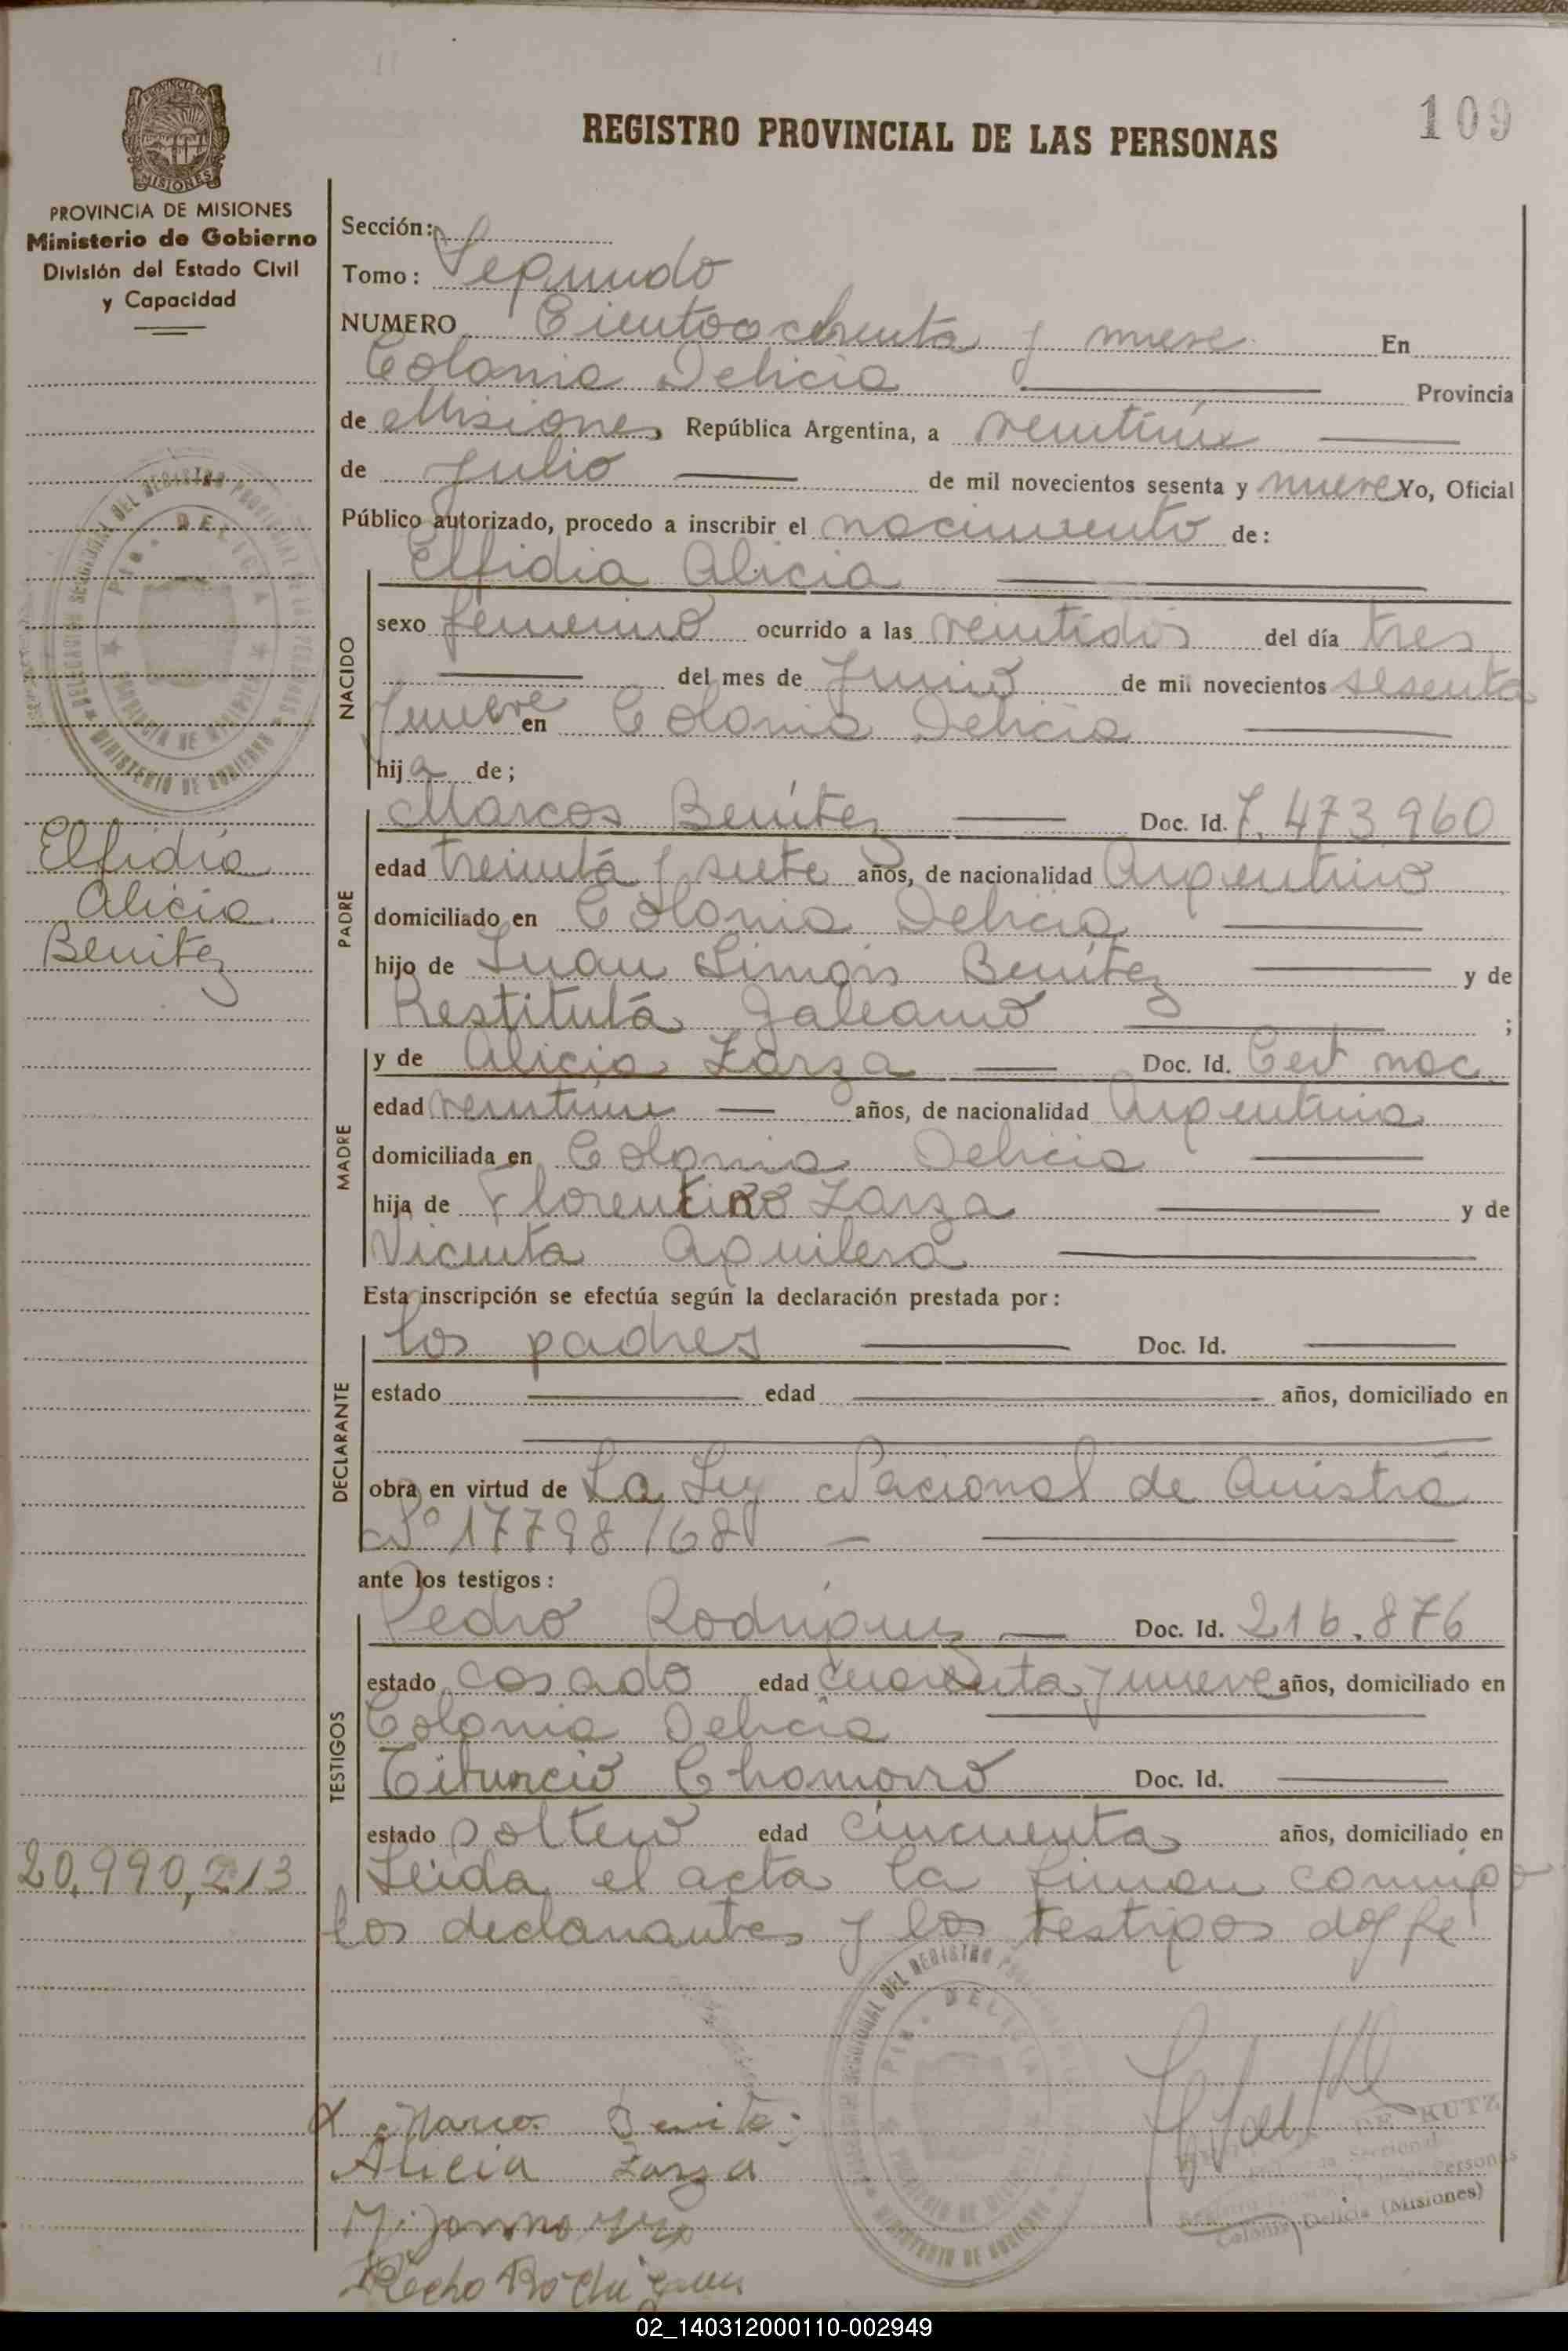 REGISTRO PROVINCIAL DE LAS PERSONAS
109
PROVINCIA DE MISIONES
Ministerio de Gobierno
División del Estado Civil
y Capacidad
Sección:
Tomo: Segundo
NUMERO Cientoochenta y nueve En
Colonia Delicia Provincia
de Misiones República Argentina, a veintiún
de Julio de mil novecientos sesenta y nueve Yo, Oficial
Público autorizado, procedo a inscribir el nacimiento de:
Elfidia Alicia
NACIDO
sexo femenino ocurrido a las veintidós del día tres
del mes de Junio de mil novecientos sesenta
y nueve en Colonia Delicia
hija de;
PADRE
Marcos Benítez Doc. Id. 7.473.960
edad treinta y siete años, de nacionalidad Argentino
domiciliado en Colonia Delicia
hijo de Juan Simón Benítez y de
Restituta Galeano ;
MADRE
y de Alicia Zarza Doc. Id. Cert nac.
edad veintiún años, de nacionalidad Argentina
domiciliada en Colonia Delicia
hija de Florentino Zarza y de
Vicenta Aguilera
Esta inscripción se efectúa según la declaración prestada por:
DECLARANTE
los padres Doc. Id.
estado edad años, domiciliado en
obra en virtud de La Ley Nacional de Amistía
Nº 17798/68
ante los testigos:
TESTIGOS
Pedro Rodríguez Doc. Id. 216.876
estado casado edad cuarenta y nueve años, domiciliado en
Colonia Delicia
Chamorro Doc. Id.
estado soltero edad cincuenta años, domiciliado en
Leída el acta la firman conmigo
los declarantes y los testigos doy fe
Elfidia
Alicia
Benitez
20.990,213
Marco Benite
Alicia Zarza
DE KUTZ
Colonia Delicia (Misiones)
02_140312000110-002949